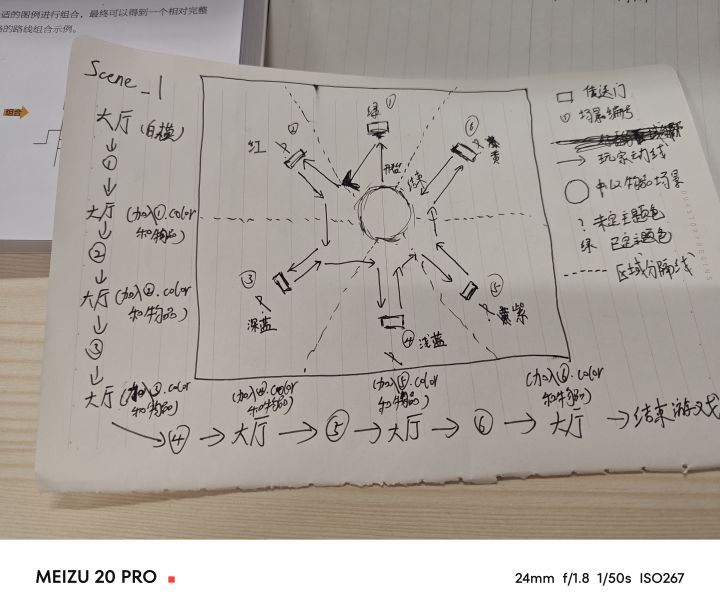 适的图例进行组合，最终可以得到一个相对完整
的路线组合示例。
组合
Scene_1
大厅(白模)
①
大厅(加入①.color
和物品)
②
大厅(加入②.color
和物品)
③
大厅(加入③.color
和物品)
④
大厅
(加入④.color
和物品)
⑤
大厅
(加入⑤.color
和物品)
⑥
大厅
(加入⑥.color
和物品)
结束游戏
①
绿
②
红
?
③
?
深蓝
④
浅蓝
?
⑤
?
紫
⑥
?
黄
开始
结束
传送门
① 场景编号
玩家动线
中心物品场景
? 未定主题色
绿 已定主题色
区域分隔线
MEIZU 20 PRO
24mm f/1.8 1/50s ISO267